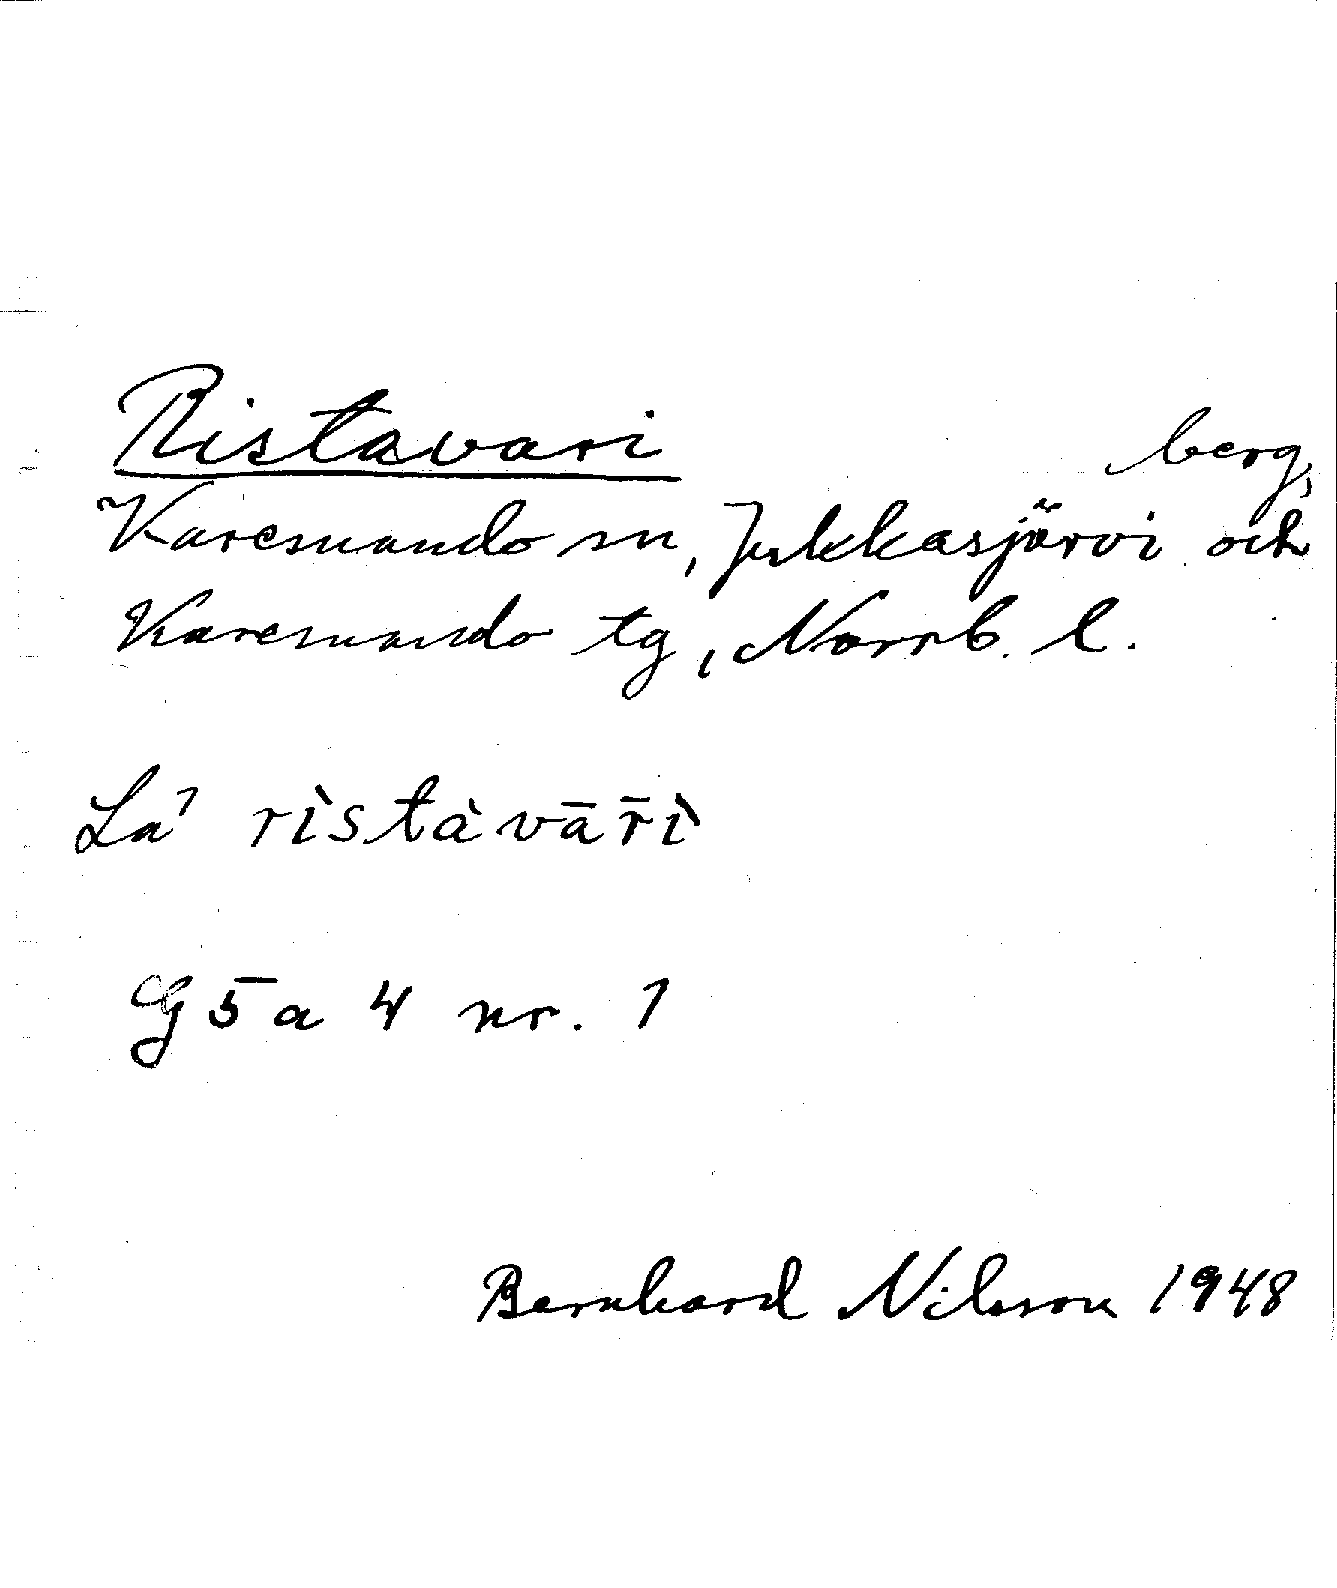 Ristavari berg,
Karesuando sn, Jukkasjärvi och
Karesuando tg, Norrb. l.
La' rìstàvār̄ì
G 5 a 4 nr. 1
Bernhard Nilsson 1948